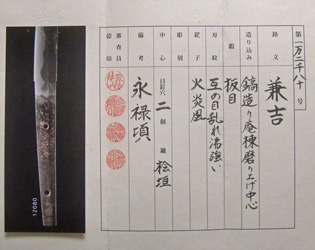 第一万二千八十号
銘文 兼吉
造り込み 鎬造り庵棟磨り上げ中心
鍛 板目
刃紋 互の目乱れ沸強い
鋩子 火炎風
中心 目釘穴 二個 鑢 桧垣
備考 永禄頃
審査員
捺印
12080